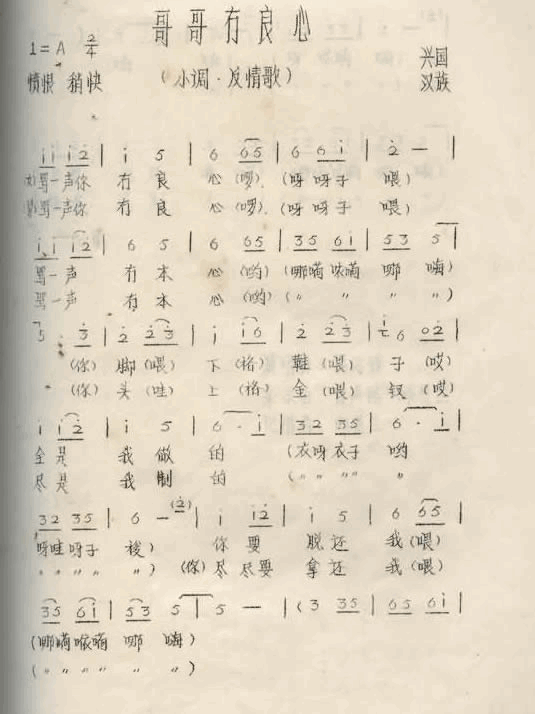 哥哥冇良心
1=A 2/4
兴国
愤恨 稍快
（小调·反情歌）
汉族
i i i 2 | i 5 | 6 6 5 | 6 6 i | 2 — |
(女)骂一声你 冇 良 心 (啰). (呀 呀子 喂)
(男)骂一声你 冇 良 心 (啰). (呀 呀子 喂)
i i i 2 | 6 5 | 6 6 5 | 3 5 6 i | 5 3 5 |
骂一声 冇 本 心 (哟) (哪嗬 嗬 哪 嗨)
骂一声 冇 本 心 (哟) (〃 〃 〃 〃)
5 . 3 | 2 2 3 | i i 6 | 2 2 3 | i 6 0 2 |
(你) 脚 (喂) 下 (格) 鞋 (喂) 子 (哎)
(你) 头 (哇) 上 (格) 金 (喂) 钗 (哎)
i i 2 | i 5 | 6 . i | 3 2 3 5 | 6 . i |
全是 我 做 的 (衣呀衣子 哟
尽是 我 制 的 (〃 〃 〃 〃 〃
3 2 3 5 | 6 — (2) | i i 2 | i 5 | 6 6 5 |
呀哇呀子 梭) 你 要 脱 还 我 (喂)
〃 〃 〃 〃 〃) (你) 尽 尽要 拿 还 我 (喂)
3 5 6 i | 5 3 5 | 5 — | (3 3 5 | 6 5 6 i |
(哪嗬 嗬 哪 嗨)
(〃 〃 〃 〃 〃 〃)